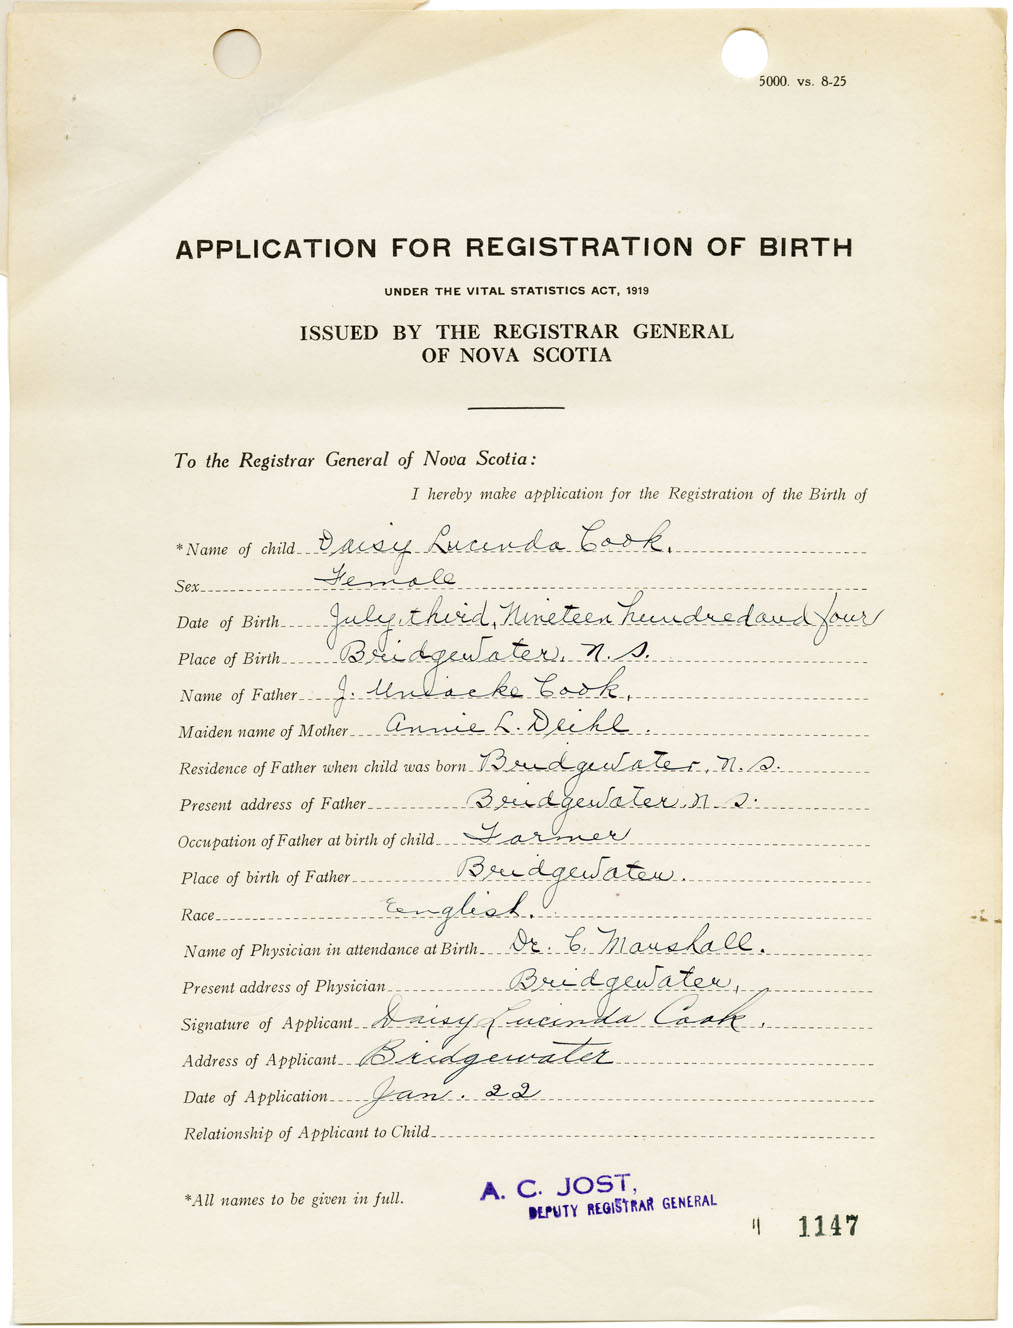 5000. vs. 8-25
APPLICATION FOR REGISTRATION OF BIRTH
UNDER THE VITAL STATISTICS ACT, 1919
ISSUED BY THE REGISTRAR GENERAL
OF NOVA SCOTIA
To the Registrar General of Nova Scotia:
I hereby make application for the Registration of the Birth of
*Name of child Daisy Lucinda Cook.
Sex Female
Date of Birth July, third, Nineteen hundred and four
Place of Birth Bridgewater, N.S.
Name of Father J. Uniacke Cook,
Maiden name of Mother Annie L. Deihl.
Residence of Father when child was born Bridgewater, N.S.
Present address of Father Bridgewater, N.S.
Occupation of Father at birth of child Farmer
Place of birth of Father Bridgewater.
Race English.
Name of Physician in attendance at Birth Dr. C. Marshall.
Present address of Physician Bridgewater,
Signature of Applicant Daisy Lucinda Cook.
Address of Applicant Bridgewater
Date of Application Jan. 22
Relationship of Applicant to Child
*All names to be given in full.
A. C. JOST,
DEPUTY REGISTRAR GENERAL
1147